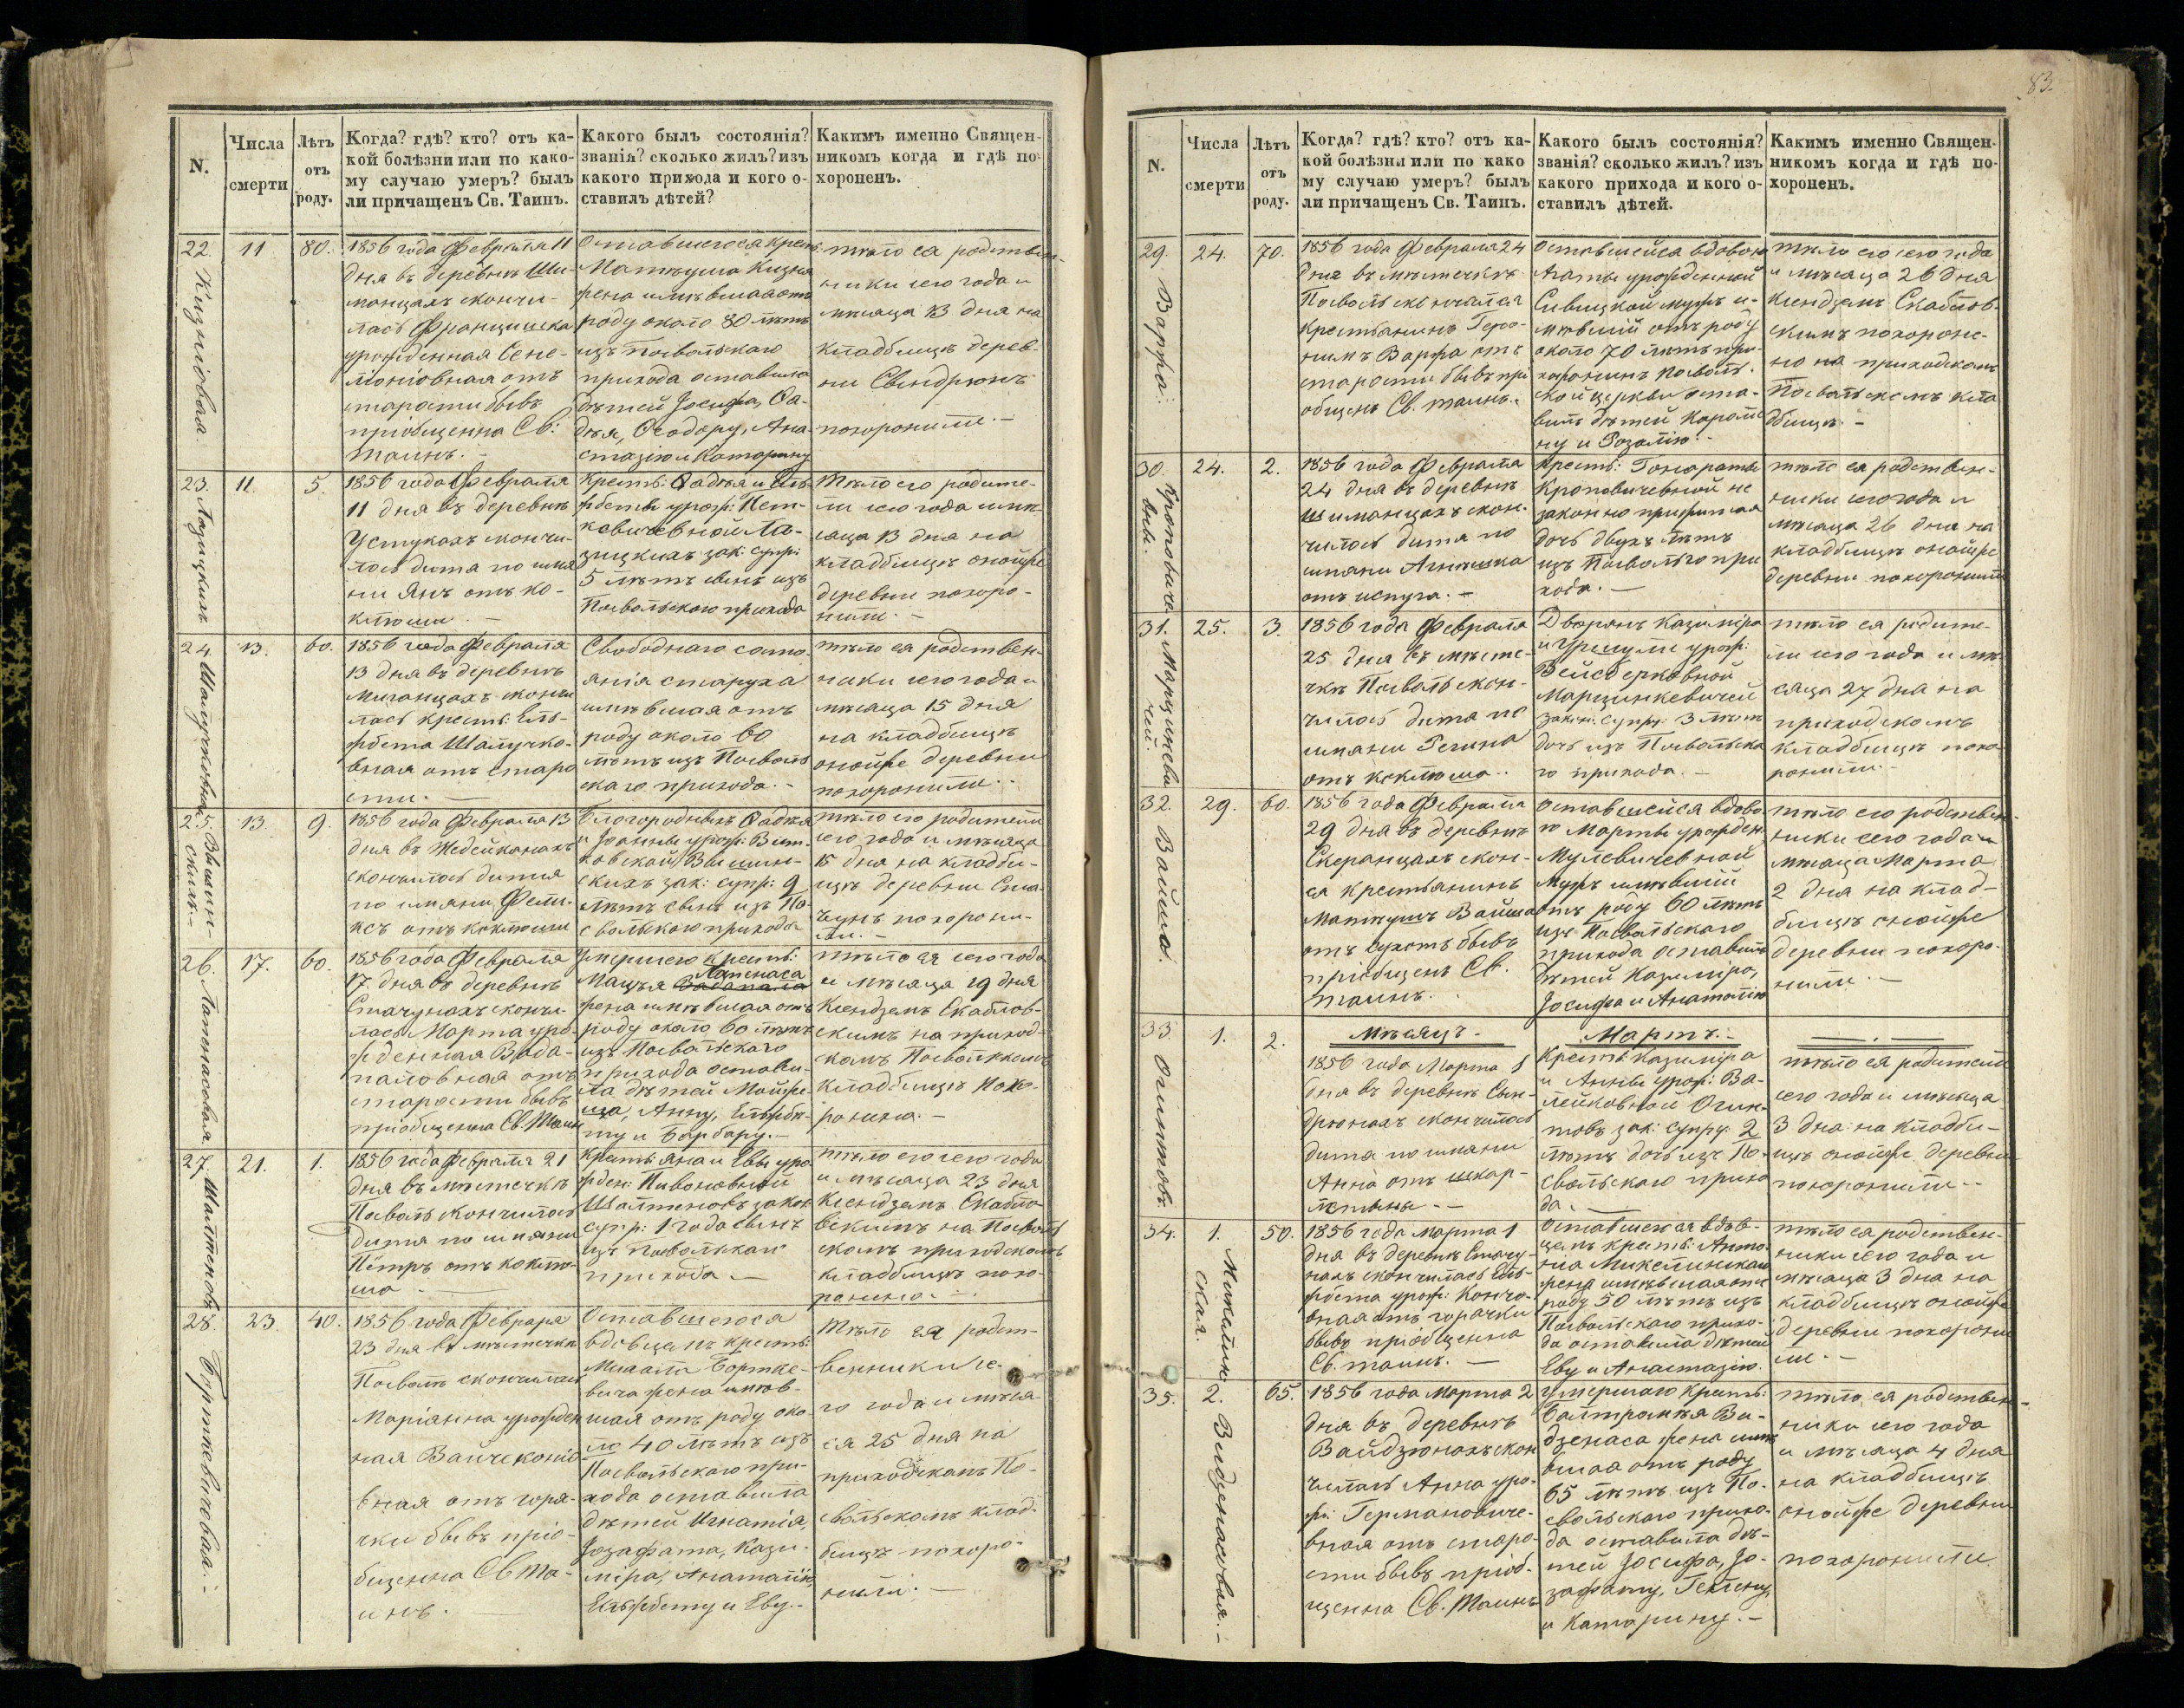 N.
Числа
смерти
Лѣтъ
отъ
роду.
Когда? гдѣ? кто? отъ ка-
кой болѣзни или по како-
му случаю умеръ? былъ
ли причащенъ Св. Таинъ.
Какого былъ состоянія?
званія? сколько жилъ? изъ
какого прихода и кого о-
ставилъ дѣтей?
Какимъ именно Священ-
никомъ когда и гдѣ по-
хороненъ.
22.
11
80.
1856 года Февраля 11
дня въ деревнѣ Ши-
манцахъ скончи-
лась Францишка
урожденная
отъ
старости бывъ
пріобщенна Св:
таинъ. -
Оставшегося крест:
Матѣуша
жена имѣвшая отъ
роду около 80 лѣтъ
изъ Посвольскаго
прихода оставила
дѣтей Іосифа, Ѳа-
дѣя, Ѳеодору, Ана-
стазію и Катарину
тѣло ея родствен-
ники сего года и
мѣсяца 13 дня на
кладбищѣ дерев-
ни Свендрюнъ
похоронили. -
23.
11.
5.
Лазицкихъ
1856 года Февраля
11 дня въ деревнѣ
Устукахъ скончи-
лось дитя по имя
ни Янъ отъ ко-
клюши. -
Крест: Ѳадѣя и Ель-
жбеты урож: Пет-
кевичевной Ла-
зицкихъ зак: супр:
5 лѣтъ сынъ изъ
Посвольскаго прихода
Тѣло его родите-
ли сего года и мѣ-
сяца 13 дня на
кладбищѣ онойже
деревни похоро-
нили. -
24.
13.
60.
1856 года Февраля
13 дня въ деревнѣ
Миганцахъ сконч
лась крест: Ель-
жбета Шалучко-
вная отъ старо
сти. -
Свободнаго состо-
янія старуха
имѣвшая отъ
роду около 60
лѣтъ изъ Посволь
скаго прихода. -
тѣло ея родствен-
ники сего года и
мѣсяца 15 дня
на кладбищѣ
онойже деревни
похоронили. -
25.
13.
9.
Вышин-
скихъ. -
1856 года Февраля 13
дня въ Жедейканахъ
скончилось дитя
по имяни Фели-
ксъ отъ коклюши
Благородныхъ Ѳадѣя
и Іоанны урож: Вит-
ковской Вышин-
скихъ зак: супр: 9
лѣтъ сынъ изъ По-
свольскаго прихода
тѣло его родители
сего года и мѣсяца
15 дня на кладби-
щѣ деревни Ста-
чунъ похорони-
ли. -
26.
17.
60.
Лапенасовая
1856 года Февраля
17 дня въ деревнѣ
Стачунахъ сконч-
лась Марта уро-
жденная Вада-
паловная отъ
старости бывъ
пріобщенна Св. Таинъ
умершего крест:
Лапенаса
Мацѣя Вадапала
жена имѣвшая отъ
роду около 60 лѣтъ
изъ Посвольскаго
прихода остави-
ла дѣтей Мойже-
ша, Анну, Ельжбе-
ту и Барбару. -
тѣло ея сего года
и мѣсяца 19 дня
Ксендземъ Скаблов-
скимъ на приход-
скомъ Посвольскомъ
кладбищѣ похо-
ронена. -
27.
21.
1.
Шалтеновъ
1856 года Февраля 21
дня въ мѣстечкѣ
Посволь скончилось
дитя по имяни
Пётръ отъ коклю-
ша. -
Крест: Яна и Евы уро
жден: Пивоновной
Шалтеновъ закон
супр: 1 года сынъ
изъ Посвольскаго
прихода. -
тѣло его сего года
и мѣсяца 23 дня
Ксендземъ Скабло-
вскимъ на Посволь
скомъ приходскомъ
кладбищѣ похо-
ронено. -
28.
23.
40.
Борткевичовая. -
1856 года Февраля
23 дня въ мѣстечкѣ
Посволь скончилась
Маріянна урожден
ная Вайчеконіо-
вная отъ горя-
чки бывъ пріо-
бщенна Св Та-
инъ. -
Оставшегося
вдовцемъ крест:
Михала Бортке-
вича жена имѣв-
шая отъ роду око-
ло 40 лѣтъ изъ
Посвольскаго при-
хода оставила
дѣтей Игнатія,
Іозафата, Кази-
міра, Анатолію,
Ельжбету и Еву. -
Тѣло ея родст-
венники се-
го года и мѣся-
ця 25 дня на
приходскомъ По-
свольскомъ клад-
бищѣ похоро-
нили. -
83.
N.
Числа
смерти
Лѣтъ
отъ
роду.
Когда? гдѣ? кто? отъ ка-
кой болѣзни или по како
му случаю умеръ? былъ
ли причащенъ Св. Таинъ.
Какого былъ состоянія?
званія? сколько жилъ? изъ
какого прихода и кого о-
ставилъ дѣтей.
Какимъ именно Священ-
никомъ когда и гдѣ по-
хороненъ.
29.
24.
70.
Варфа.
1856 года Февраля 24
дня въ мѣстечкѣ
Посволь скончался
крестьянинъ Геро-
нимъ Варфа отъ
старости бывъ прі
общенъ Св. таинъ. -
Оставшейся вдовою
Агаты урожденной
Сивицкой мужъ и-
мѣвшій отъ роду
около 70 лѣтъ при-
хожанинъ Посволь-
ской церкви оста-
вилъ дѣтей Кароли
ну и Розалію. -
тѣло его сего года
и мѣсяца 26 дня
Ксендземъ Скаблов-
скимъ похороне-
но на приходскомъ
Посвольскомъ кла
дбищѣ. -
30.
24.
2.
Кроповиче-
1856 года Февраля
24 дня въ деревнѣ
Шиманцахъ скон-
чилось дитя по
имяни Агнѣшка
отъ испуга. -
Крест: Гонораты
Кроповичевной не
законно прижитая
дочь двухъ лѣтъ
изъ Посвольско при
хода. -
тѣло ея родствен-
ники сего года и
мѣсяца 26 дня на
кладбищѣ онойже
деревни похоронили
31.
25.
3.
Марцинкеви-
чей.
1856 года Февраля
25 дня въ мѣсте-
чкѣ Посволь скон-
чилось дитя по
имяни Регина
отъ коклюша. -
Дворянъ Казиміра
и Уршули урож:
Вейсберковной
Марцинкевичей
закон: супр: 3 лѣтъ
дочь изъ Посвольска
го прихода. -
тѣло ея родите-
ли сего года и мѣ-
сяца 27 дня на
приходскомъ
кладбищѣ похо-
ронили. -
32.
29.
60.
Вайша.
1856 года Февраля
29 дня въ деревнѣ
Скеранцахъ скон-
ся крестьянинъ
Матѣушъ Вайша
отъ сухотъ бывъ
пріобщенъ Св.
таинъ. -
Оставшейся вдово
ю Марты урожден
Мулевичевной
мужъ имѣвшій
отъ роду 60 лѣтъ
изъ Посвольскаго
прихода оставилъ
дѣтей Казимира,
Іосифа и Анатолію
тѣло его родствен-
ники сего года и
мѣсяца Марта
2 дня на клад-
бищѣ онойже
деревни похоро-
нили. -
Мѣсяцъ -
Мартъ. -
33.
1.
2.
Огинтовъ.
1856 года Марта 1
дня въ деревнѣ Свен-
дрюнахъ скончилось
дитя по имяни
Анна отъ шкар-
латыны. -
Крест: Казимира
и Анны урож: Ва-
лейковной Огин-
товъ зак: супру: 2
лѣтъ дочь изъ По-
свольскаго прихо
да. -
тѣло ея родители
сего года и мѣсяца
3 дня на кладби-
щѣ онойже деревни
похоронили. -
34.
1.
50.
Микелин-
ская.
1856 года Марта 1
дня въ деревнѣ Стачу-
нахъ скончилась Ель-
жбета урож: Кончо-
вная отъ горячки
бывъ пріобщенна
Св. таинъ. -
Оставшегося вдов-
цемъ крест: Анто-
на Микелинскаго
жена имѣвшая отъ
роду 50 лѣтъ изъ
Посвольскаго прихо-
да оставила дѣтей
Еву и Анастазію.
тѣло ея родствен-
ники сего года и
мѣсяца 3 дня на
кладбищѣ онойже
деревни похорони
ли. -
35.
2.
65.
Видзенасовая. -
1856 года Марта 2
дня въ деревнѣ
Вайдзюнахъ скон
чилась Анна уро-
ж: Германовиче-
вная отъ старо-
сти бывъ пріоб-
щенна Св. Таинъ
умершаго крест:
Балтромѣя Ви-
дзенаса жена имѣ
вшая отъ роду
65 лѣтъ изъ По-
свольскаго прихо-
да оставила дѣ-
тей Іосифа, Іо-
зафату, Гелену,
и Катарину. -
тѣло ея родствен-
ники сего года
и мѣсяца 4 дня
на кладбищѣ
онойже деревни
похоронили